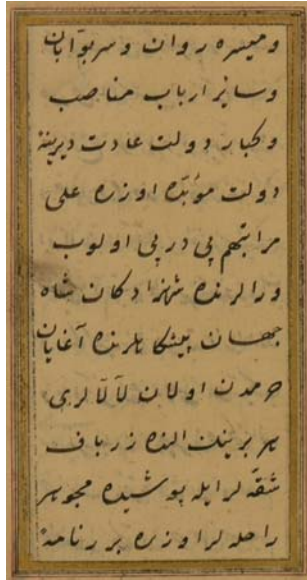 و میسره روان و سربوابان
و سایر ارباب مناصب
و کبار دولت عادت دیرینهٔ
دولت مؤبده اوزره علی
مراتبهم پی در پی اولوب
ورالرنده شهزادکان شاه
جهان پیشکاهلرنده آغایان
حرمدن اولان لآلالری
هر برینک النده زرباف
شقه لر ایله پوشیده مجوهر
راحله لر اوزره بر رنامهٔ